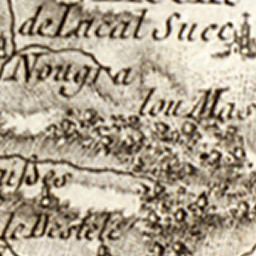 de Lacal Succ
Nougra
lou Mas
le Destele